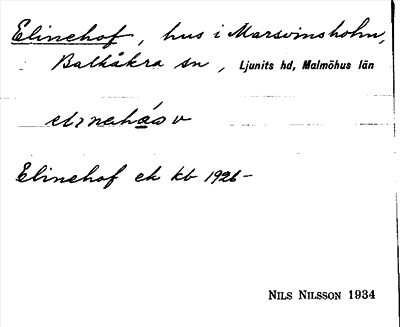 Elinehof, hus i Marsvinsholm,
Balkåkra sn, Ljunits hd, Malmöhus län
Elinehof ek kb 1926-
NILS NILSSON 1934